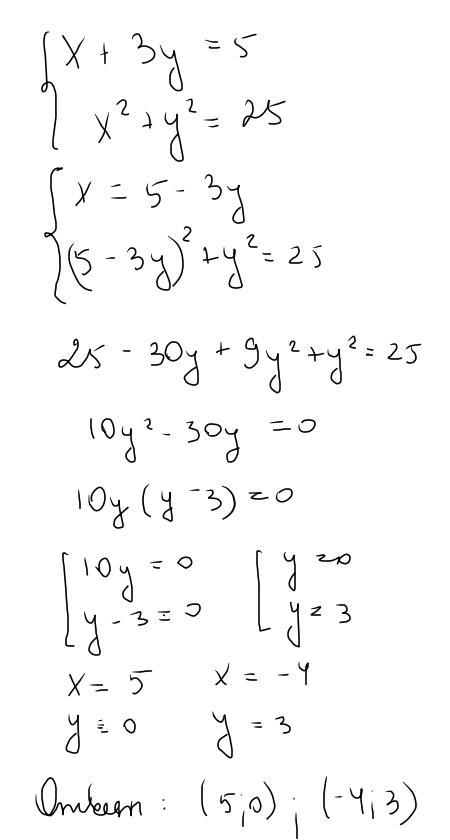 x + 3y = 5
x² + y² = 25
x = 5 - 3y
(5 - 3y)² + y² = 25
25 - 30y + 9y² + y² = 25
10y² - 30y = 0
10y (y - 3) = 0
10y = 0 y = 0
y - 3 = 0 y = 3
x = 5 x = -4
y = 0 y = 3
Ответ: (5;0); (-4;3)